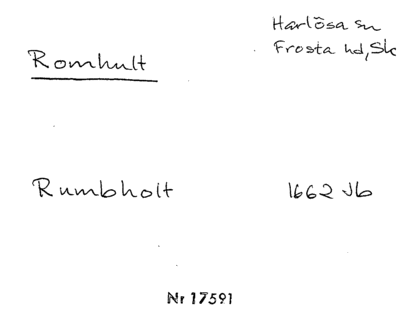 Harlösa sn
Frosta hd, Sk
Romhult
Rumbholt 1662 Jb
Nr 17591